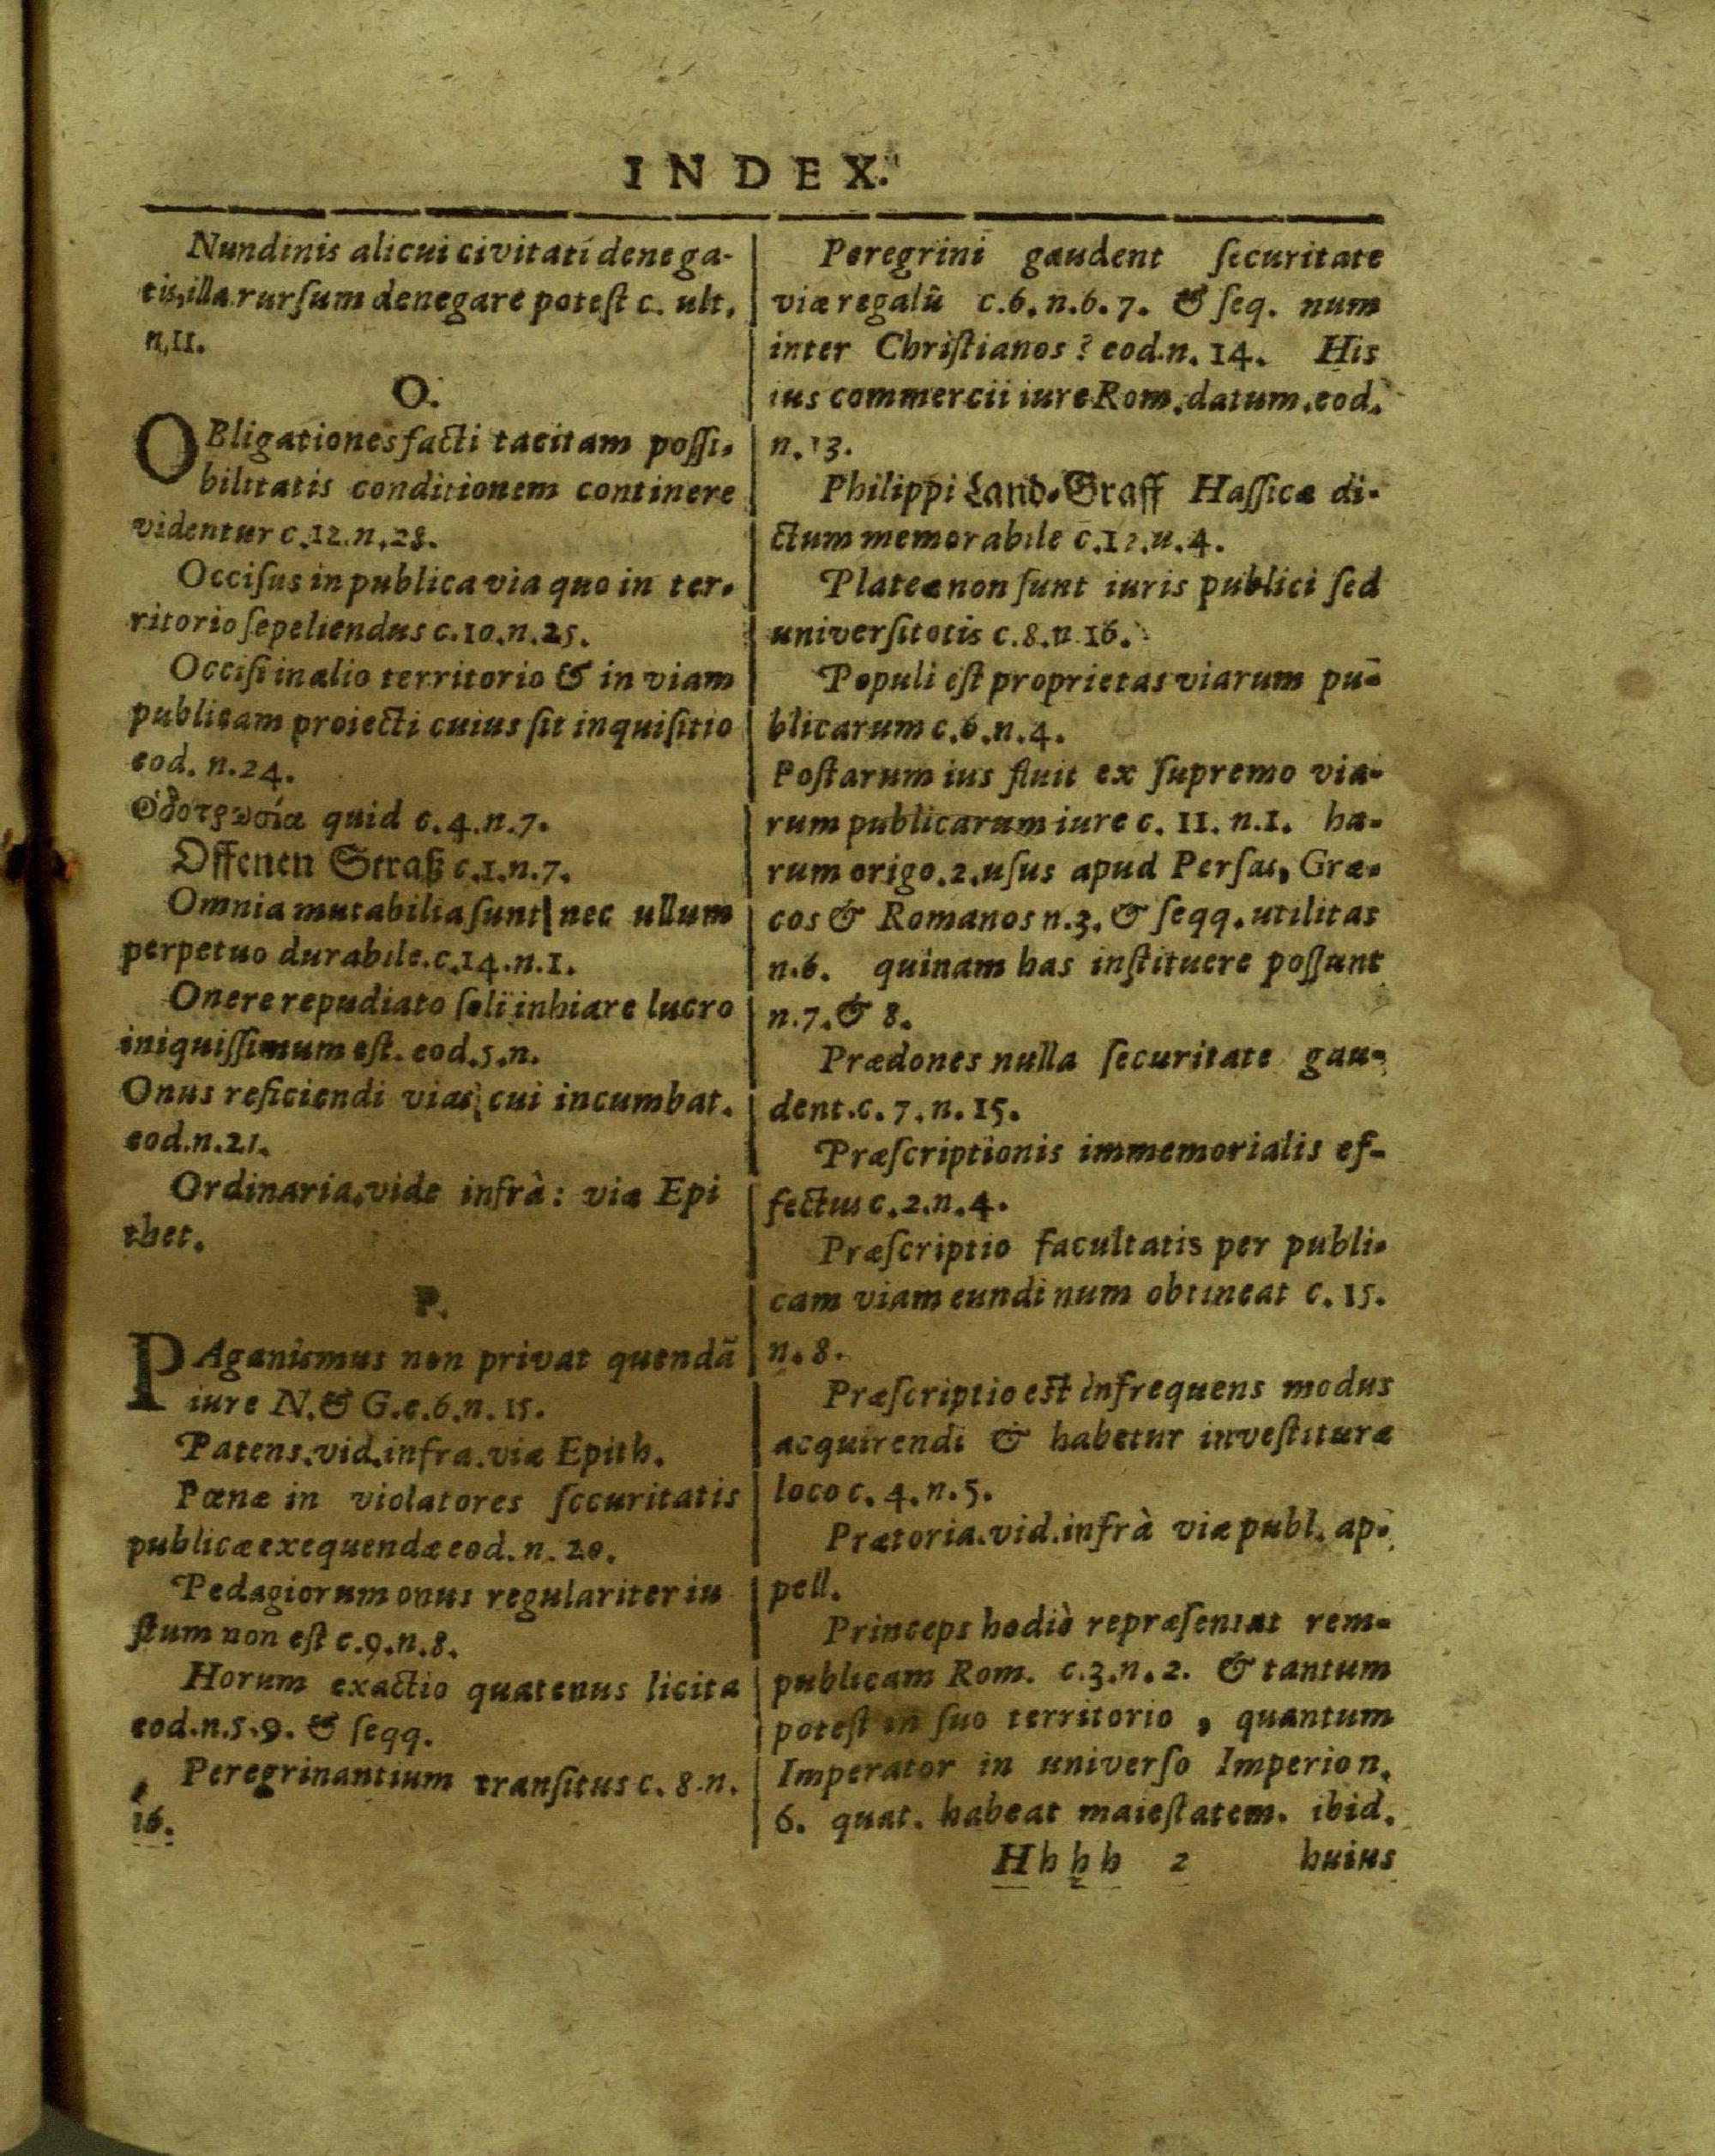 INDEX.
Nundinis alicui civitati denega-
tis, illa rurſum denegare poteſt c. ult.
n,11.
O.
OBligationes facti tacitam poſſi-
bilitatis conditionem continere
videntur c.12.n.28.
Occiſus in publica via quo in ter-
ritorio ſepeliendus c.10.n.25.
Occiſi in alio territorio & in viam
publicam proiecti cuius ſit inquiſitio
eod. n.24.
quid c.4.n.7.
Offenen Straß c.1.n.7.
Omnia mutabilia ſunt nec ullum
perpetuo durabile.c.14.n.1.
Onere repudiato ſoli inhiare lucro
iniquiſſimum eſt. eod.5.n.
Onus reficiendi vias cui incumbat.
eod.n.21.
Ordinaria.vide infrà: viæ Epi
thet.
P.
PAganismus non privat quendã
iure N.& G.c.6.n.15.
Patens.vid.infra.viæ Epith.
Pœnæ in violatores ſecuritatis
publicæ exequendæ eod. n. 20.
Pedagiorum onus regulariter iu
ſtum non eſt c.9.n.8.
Horum exactio quatenus licita
eod.n.5.9. & ſeqq.
Peregrinantium tranſitus c. 8.n.
16.
Peregrini gaudent ſecuritate
viæ regalû c.6.n.6.7. & ſeq. num
inter Chriſtianos? eod.n.14. His
ius commercii iure Rom.datum.eod.
n.13.
Philippi Land-Graff Haſſicæ di-
ctum memorabile n.4.
Plateæ non ſunt iuris publici ſed
univerſitotis c.8.n 16.
Populi eſt proprietas viarum pu-
blicarum c.6.n.4.
Poſtarum ius fluit ex ſupremo via-
rum publicarum iure c. 11. n.1. ha-
rum origo.2.uſus apud Perſas, Græ-
cos & Romanos n.3. & ſeqq.utilitas
n.6. quinam has inſtituere poſſunt
n.7.& 8.
Prædones nulla ſecuritate gau-
dent.c.7.n.15.
Præſcriptionis immemorialis ef-
fectus c.2.n.4.
Præſcriptio facultatis per publi-
cam viam eundi num obtineat c.15.
n.8.
Præſcriptio eſt infrequens modus
acquirendi & habetur inveſtituræ
loco c.4.n.5.
Prætoria.vid.infrà viæ publ. ap-
pell.
Princeps hodiè repræſentat rem-
publicam Rom. c.3.n.2. & tantum
poteſt in ſuo territorio, quantum
Imperator in univerſo Imperio n.
6. quat. habeat maieſtatem. ibid.
Hhhh 2 huius